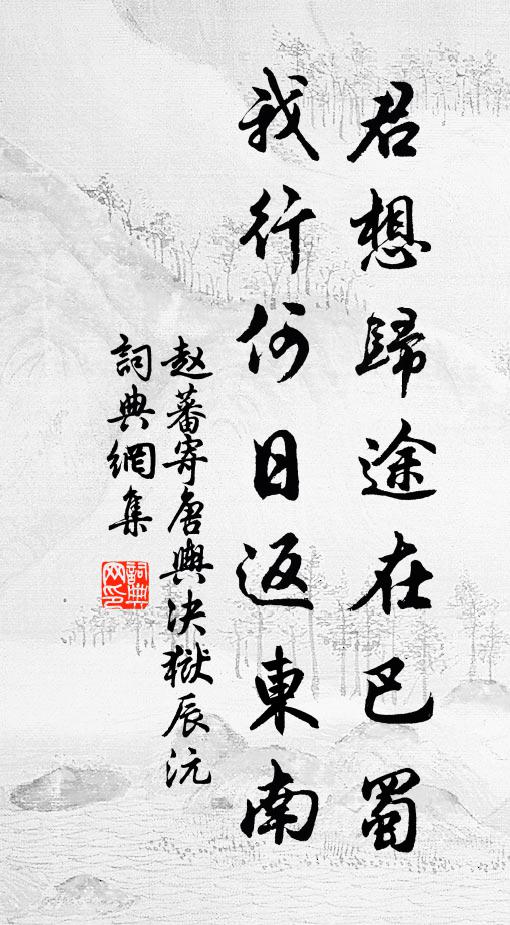 君想歸途在巴蜀
我行何日返東南
赵蕃寄唐與决獄辰沅
詞典網集
詞典
网印